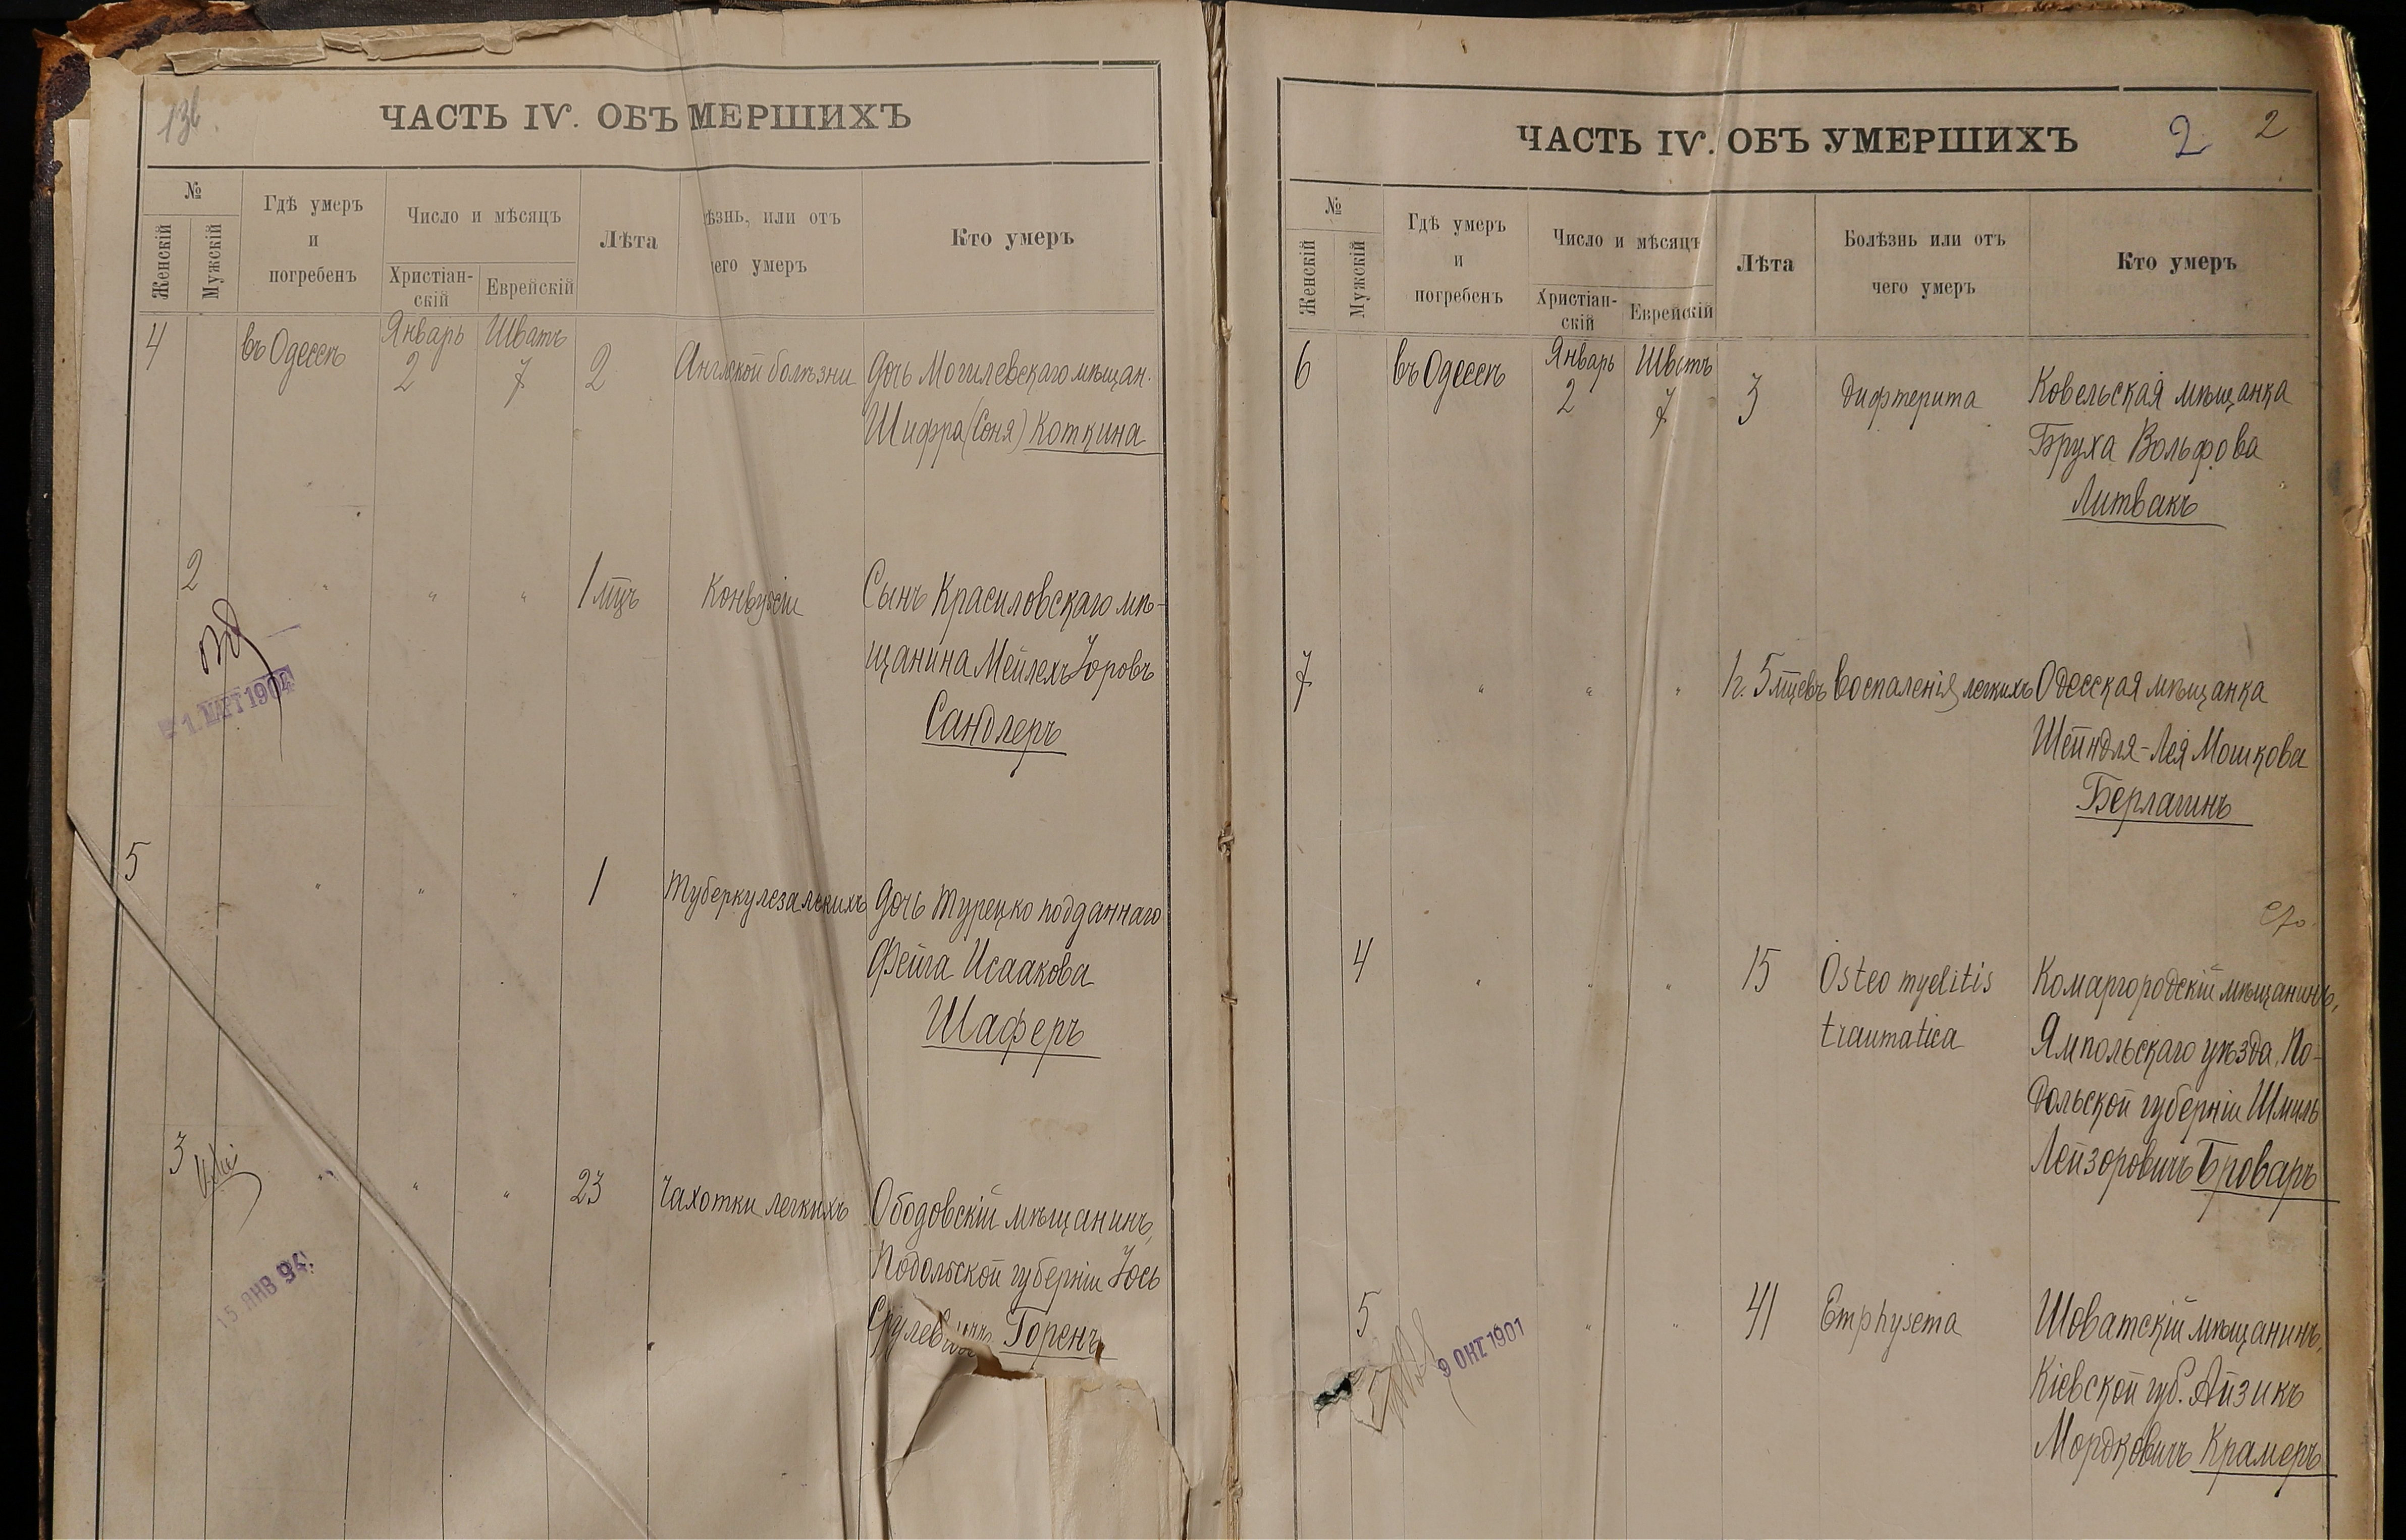 136.
ЧАСТЬ IV. ОБЪ МЕРШИХЪ
№
Женскій
Мужскій
Гдѣ умеръ
и
погребенъ
Число и мѣсяцъ
Христіан-
скій
Еврейскій
Лѣта
ѣзнь, или отъ
чего умеръ
Кто умеръ
4 въ Одессѣ Январь 2 Шватъ 7 2 Англской болѣзни Дочь Могилевскаго мѣщан.
Шифра (Соня) Коткина
2 " " " 1 мцъ Конвулсіи Сынъ Красиловскаго мѣ-
щанина Мейлехъ Іоровъ
Сандлеръ
1. МАРТ 1904
5 " " " 1 Туберкулеза легкихъ Дочь Турецко подданнаго
Фейга Исаакова
Шаферъ
3 " " " 23 Чахотки легкихъ Ободовскій мѣщанинъ,
Подольской губерніи Іось
Срулевичъ Горенъ
15 ЯНВ 94.
ЧАСТЬ IV. ОБЪ УМЕРШИХЪ
2 2
№
Женскій
Мужскій
Гдѣ умеръ
и
погребенъ
Число и мѣсяцъ
Христіан-
скій
Еврейскій
Лѣта
Болѣзнь или отъ
чего умеръ
Кто умеръ
6 въ Одессѣ Январь 2 Шватъ 7 3 Дифтерита Ковельская мѣщанка
Бруха Вольфова
Литвакъ
7 " " " 1 г. 5 мцевъ воспаленія легкихъ Одесская мѣщанка
Шейндля-Лея Мошкова
Берлагинъ
4 " " " 15 Osteo myelitis Комаргородскій мѣщанинъ,
traumatica Ямпольскаго уѣзда, По-
дольской губерніи Шмиль
Лейзоровичъ Броваръ
5 " " 41 Emphysema Шоватскій мѣщанинъ,
Кіевской губ. Айзикъ
Мордковичъ Крамеръ
9 ОКТ 1901